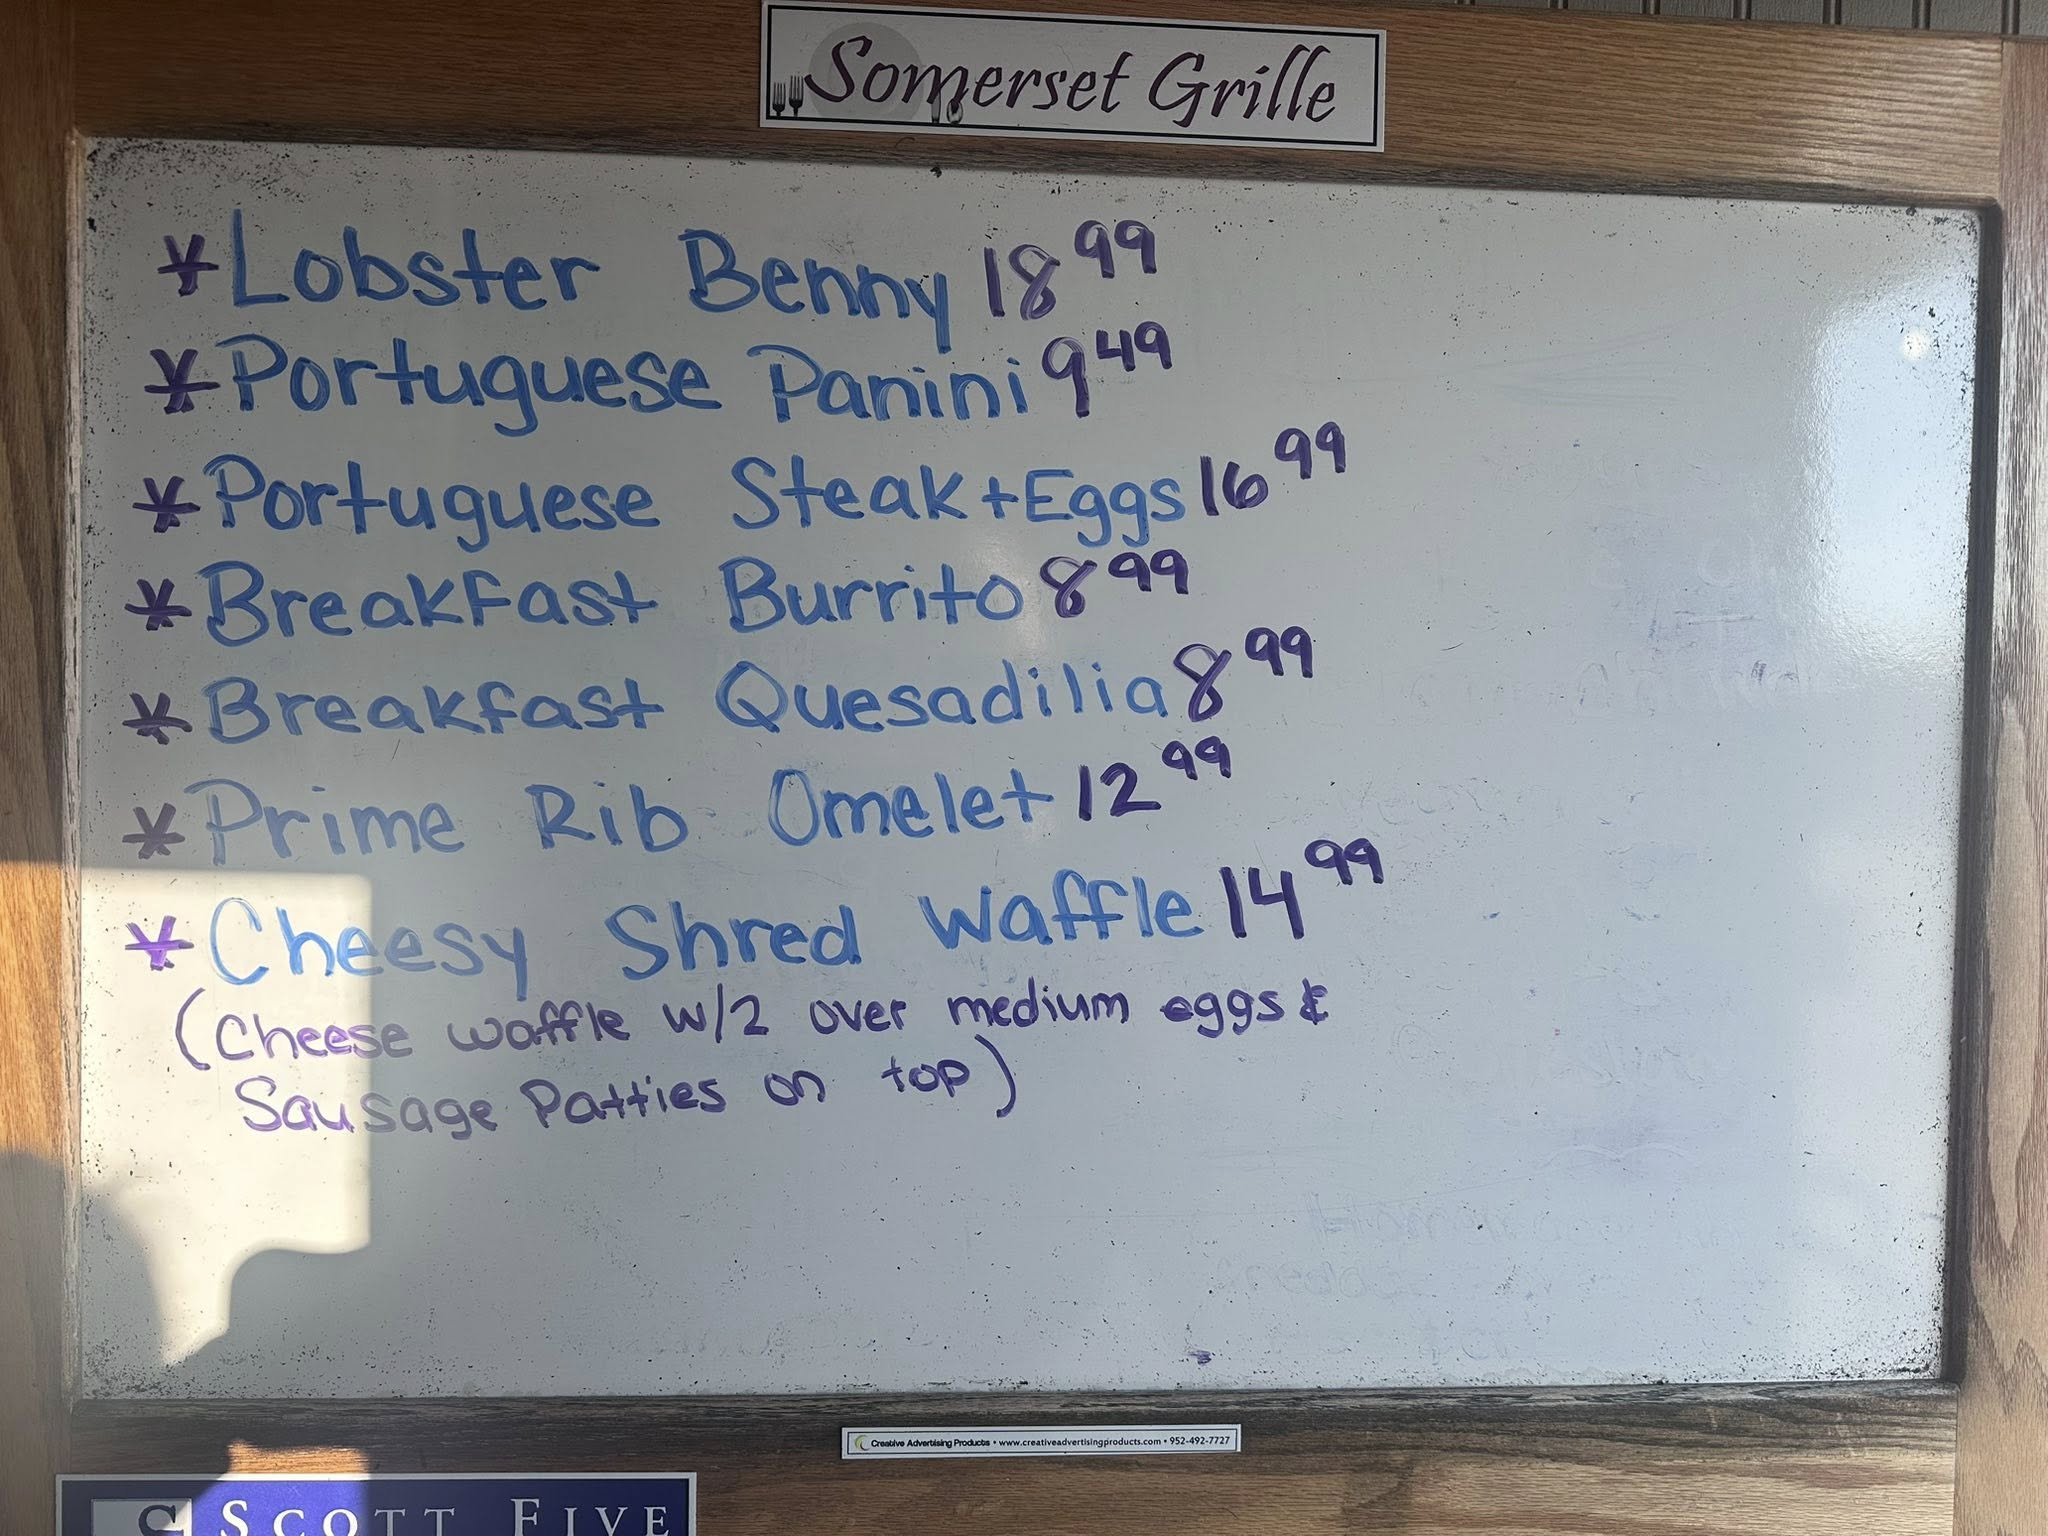 Somerset Grille
* Lobster Benny 18 99
* Portuguese Panini 9 49
* Portuguese Steak + Eggs 16 99
* Breakfast Burrito 8 99
* Breakfast Quesadilia 8 99
* Prime Rib Omelet 12 99
* Cheesy Shred Waffle 14 99
(Cheese waffle w/2 over medium eggs &
Sausage Patties on top)
Creative Advertising Products • www.creativeadvertisingproducts.com • 952-492-7727
S SCOTT FIVE